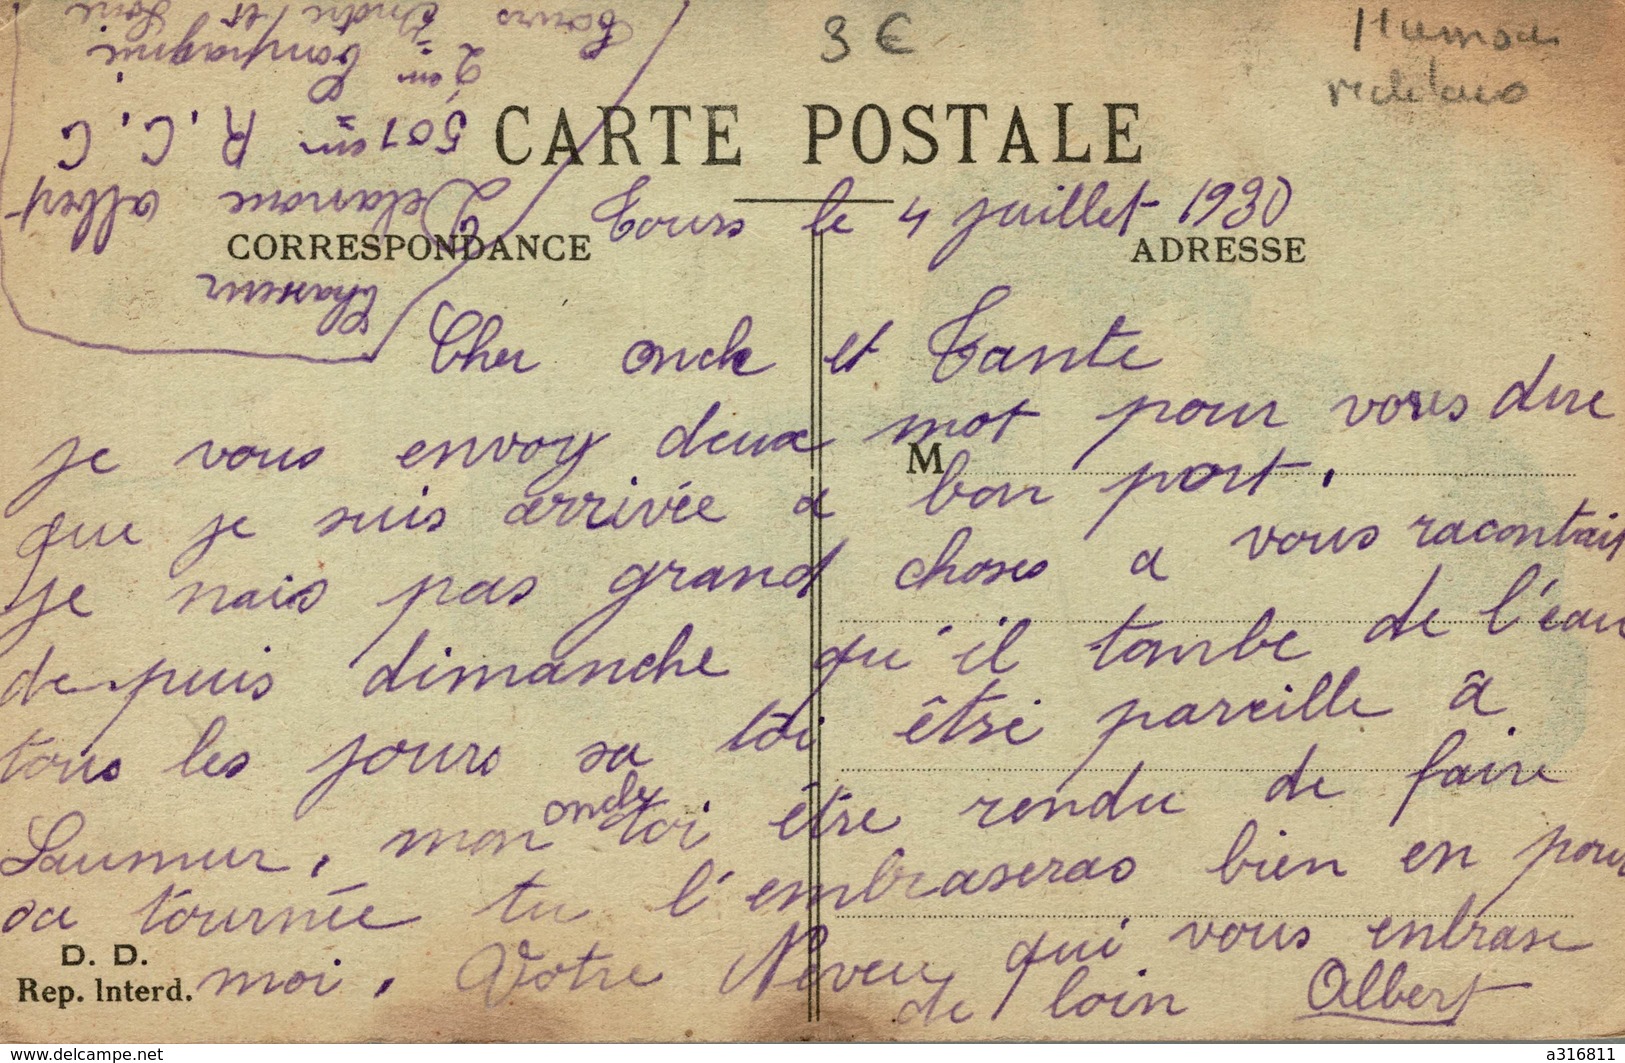 3 €
CARTE POSTALE
Tours le 4 juillet 1930
CORRESPONDANCE
ADRESSE
Chasseur
Delarnoue Albert
501em R. C. C
2em Compagnie
Tours Indre et Loire
Cher oncle et Tante
je vous envoy deux mot pour vous dire
M
que je suis arrivée a bon port.
je nais pas grand choses a vous racontait
depuis dimanche qu'il tombe de l'eau
tous les jours sa doi être pareille â
Saumur, mon oncle doi être rendu de faire
sa tournée tu l'embraseras bien en pour
moi. Votre Neveu qui vous enbrase
de loin Albert
D. D.
Rep. Interd.
www.delcampe.net
a316811